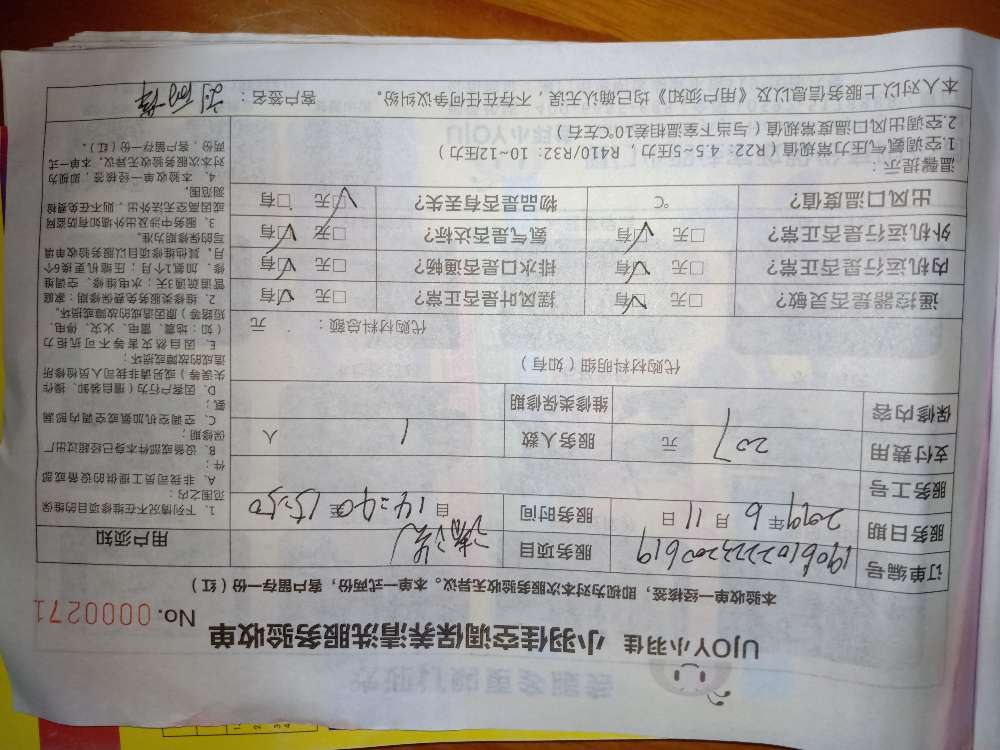 UJOY小羽佳 小羽佳空调保养清洗服务验收单
No. 0000271
本验收单一经核签，即视为对本次服务验收无异议。本单一式两份，客户留存一份（红）
订单编号 服务项目 清洗
服务日期 2019年6月11日 服务时间 自14:40至15:50
服务工号
支付费用 207 元 服务人数 1 人
保修内容 维修类保修期
代购材料明细（如有）
代购材料总额： 元
遥控器是否灵敏？ □无 ☑有 摆风叶是否正常？ □无 ☑有
内机运行是否正常？ □无 ☑有 排水口是否通畅？ □无 ☑有
外机运行是否正常？ □无 ☑有 氨气是否达标？ □无 ☑有
出风口温度值？ ℃ 物品是否有丢失？ ☑无 □有
温馨提示：
1.空调氨气压力常规值（R22：4.5~5压力，R410/R32：10~12压力）
2.空调出风口温度常规值（与当下室温相差10℃左右）
本人对以上服务信息以及《用户须知》均已确认无误，不存在任何争议纠纷。 客户签名：
用户须知
1、下列情况不在维修项目的维保
范围之内：
A、非我司员工提供的设备或部
件；
B、设备或部件本身已经超过出厂
保修期；
C、空调空机加氨或空调内部漏
氨；
D、因客户行为（擅自装卸、操作
失误等）或另请非我司人员检修所
造成的故障或损坏；
E、因自然灾害等不可抗拒力
（如：地震、雷电、火灾、停电、
短路等）原因造成的故障或损坏。
2、维修类服务免费保修期：家庭
管道疏通3天；水电维修、空调维
修、加氨1个月；压缩机更换6个
月，其他维修项目以服务验收单填
写的保修期为准。
3、服务中涉及出外墙如有防盗网
或因高空无法外出，则不在免费检
测范围。
4、本验收单一经核签；即视为
对本次服务验收无异议，本单一式
两份，客户留存一份（红）。